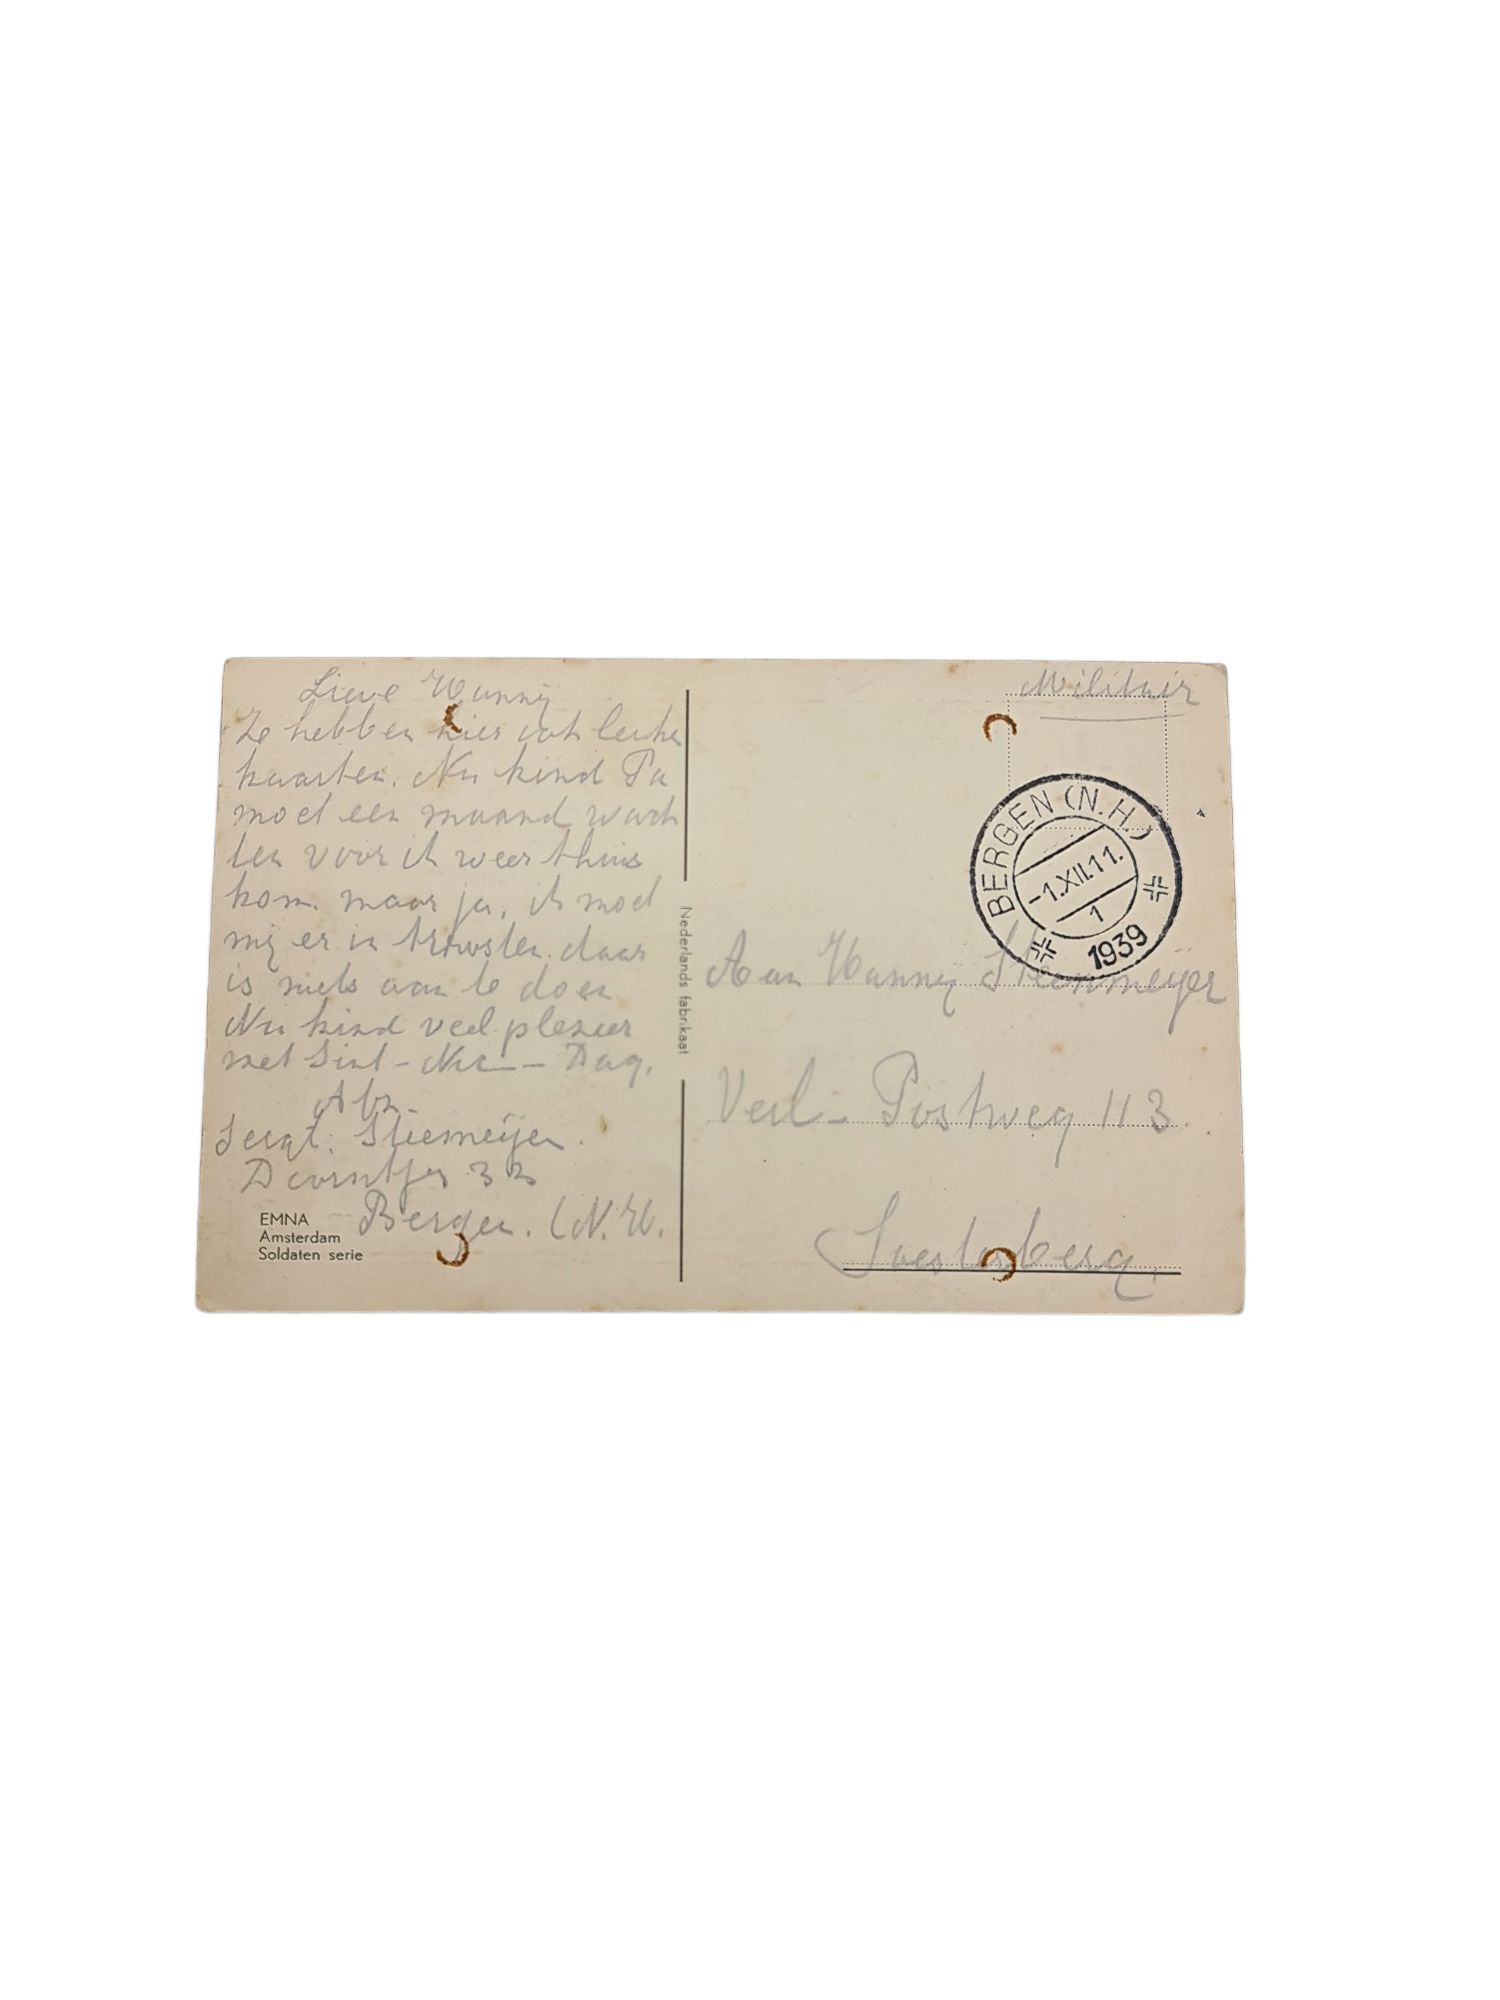 Lieve Hanny
Ze hebben hier ook leuke
kaarten. Nu kind Pa
moet een maand wach
ten voor ik weer thuis
kom. maar ja, ik moet
mij er in troosten. daar
is niets aan te doen
Nu kind veel plezier
met Sint - Nic - Dag.
Afz.
Sergt.
Doorntjes 32
Bergen. (N.H.
EMNA
Amsterdam
Soldaten serie
Nederlands fabrikaat
Militair
BERGEN (N.H.)
-1.XII.11.
1
1939
Aan Hanny
Verl- Postweg 113.
Soesterberg.